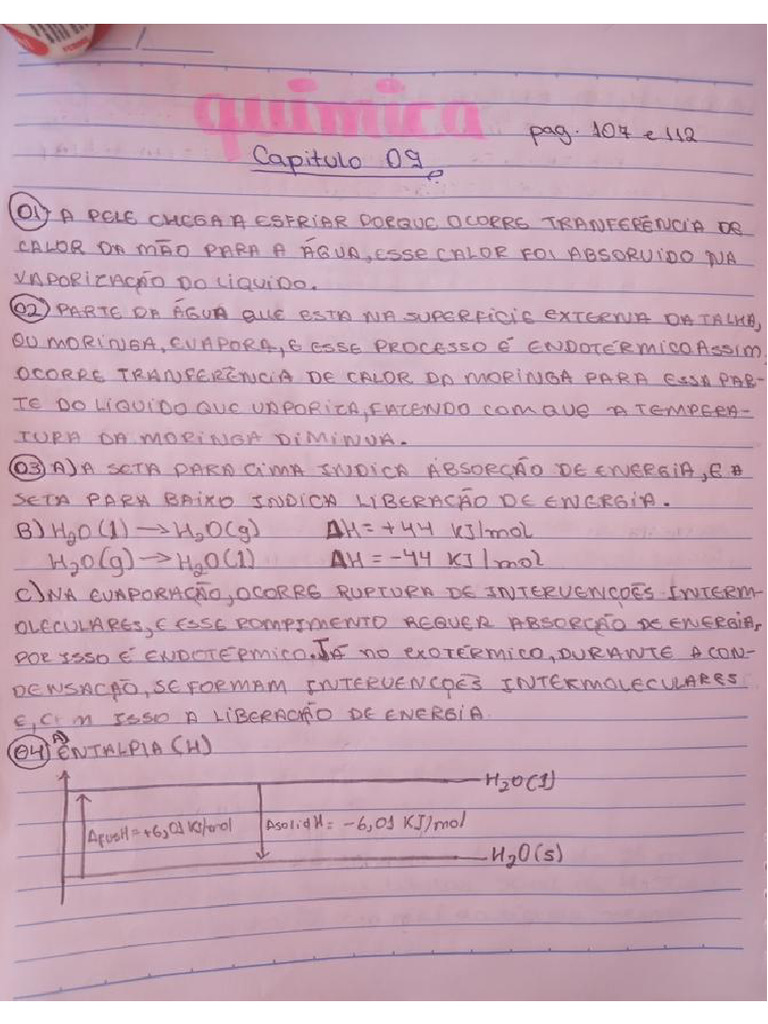 química pag. 107 e 112
Capitulo 09
01) A PELE CHEGA A ESFRIAR PORQUE OCORRE TRANFERÊNCIA DE
CALOR DA MÃO PARA A ÁGUA, ESSE CALOR FOI ABSORVIDO NA
VAPORIZAÇÃO DO LÍQUIDO.
02) PARTE DA ÁGUA QUE ESTA NA SUPERFICIE EXTERNA DA TALHA,
OU MORINGA, EVAPORA, E ESSE PROCESSO É ENDOTÉRMICO ASSIM
OCORRE TRANFERÊNCIA DE CALOR DA MORINGA PARA ESSA PAR-
TE DO LÍQUIDO QUE VAPORIZA, FAZENDO COM QUE A TEMPERA-
TURA DA MORINGA DIMINUA.
03) A) A SETA PARA CIMA INDICA ABSORÇÃO DE ENERGIA, E A
SETA PARA BAIXO INDICA LIBERAÇÃO DE ENERGIA.
B) H₂O(l) → H₂O(g) ΔH = +44 KJ/mol
H₂O(g) → H₂O(l) ΔH = -44 KJ/mol
C) NA EVAPORAÇÃO, OCORRE RUPTURA DE INTERVENÇOÊS INTERM-
OLECULARES, E ESSE ROMPIMENTO REQUER ABSORÇÃO DE ENERGIA,
POR ISSO É ENDOTÉRMICO. JÁ NO EXOTÉRMICO, DURANTE A CON-
DENSAÇÃO, SE FORMAM INTERVENÇOÊS INTERMOLECULARES
E, COM ISSO A LIBERAÇÃO DE ENERGIA
04) A) ENTALPIA (H)
H₂O(l)
ΔfusH = +6,01 KJ/mol ΔsolidH = -6,01 KJ/mol
H₂O(s)